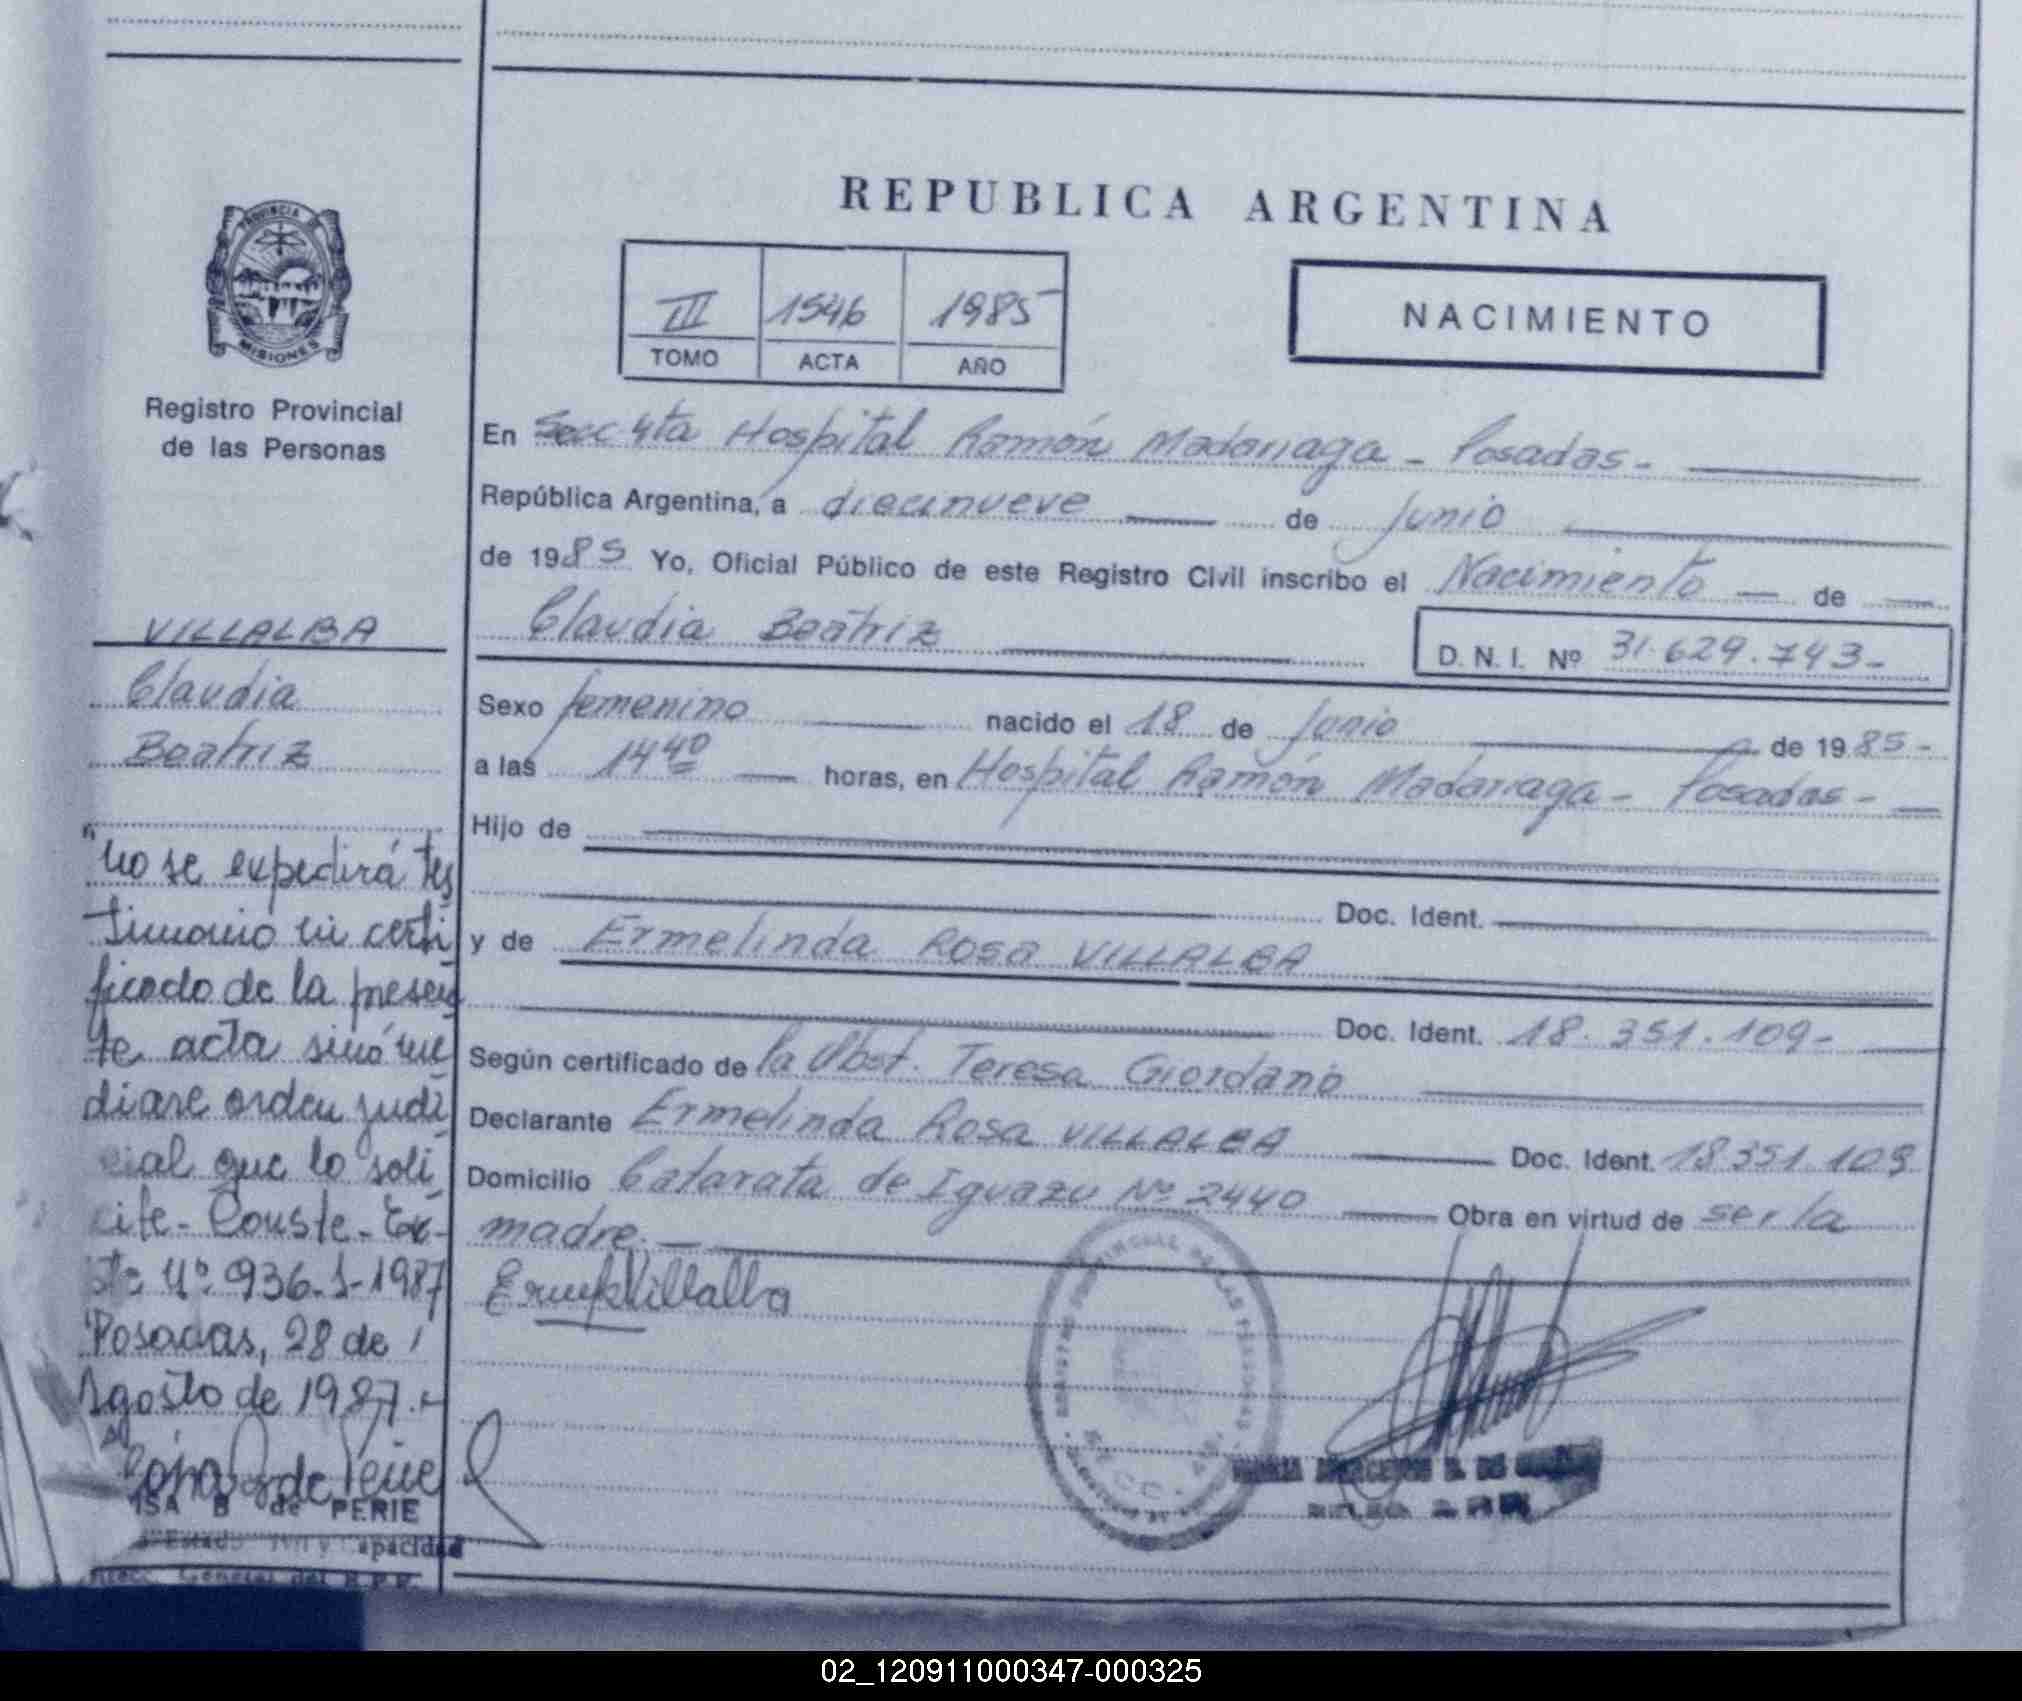 REPUBLICA ARGENTINA
III 1546 1985
TOMO ACTA AÑO
NACIMIENTO
PROVINCIA DE
MISIONES
Registro Provincial
de las Personas
VILLALBA
Claudia
Beatriz
"No se expedirá tes
timonio ni certi
ficado de la presen
te acta sinó me
diare orden judi
cial que lo soli
cite- Conste- Ex-
pte Nº 936-J-1987
Posadas, 28 de
Agosto de 1987.-
B de PERIE
Capacidad
General del R.P.P.
En Secc 4ta Hospital Ramón Madariaga - Posadas -
República Argentina, a diecinueve de Junio
de 1985 Yo, Oficial Público de este Registro Civil inscribo el Nacimiento de
Claudia Beatriz D. N. I. Nº 31.629.743-
Sexo femenino nacido el 18 de Junio de 1985-
a las 14 40 horas, en Hospital Ramón Madariaga - Posadas -
Hijo de
Doc. Ident.
y de Ermelinda Rosa VILLALBA
Doc. Ident. 18.351.109-
Según certificado de la Obst. Teresa Giordano
Declarante Ermelinda Rosa VILLALBA Doc. Ident. 18351.109
Domicilio Catarata de Iguazu Nº 2440 Obra en virtud de ser la
madre.
Villalba
02_120911000347-000325